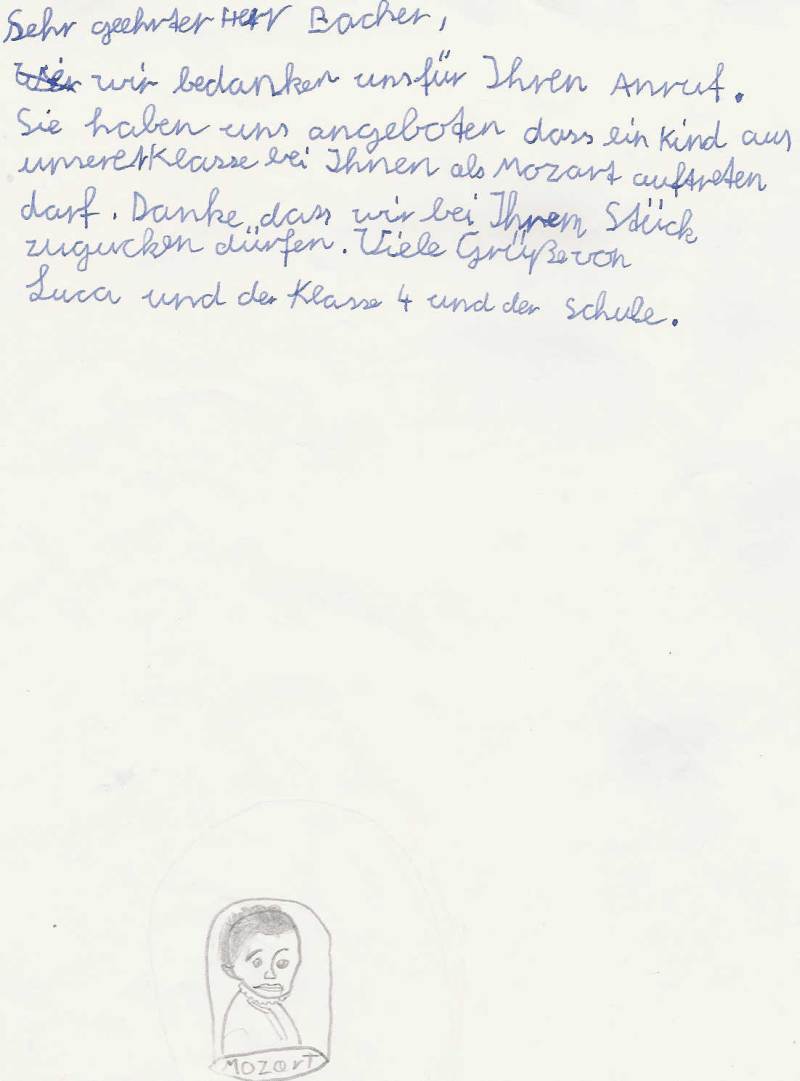 Sehr geehrter Herr Bacher,
wir bedanken uns für Ihren Anruf.
Sie haben uns angeboten dass ein Kind aus
unserer Klasse bei Ihnen als Mozart auftreten
darf. Danke, dass wir bei Ihrem Stück
zugucken dürfen. Viele Grüße von
Luca und der Klasse 4 und der Schule.
MOZarT